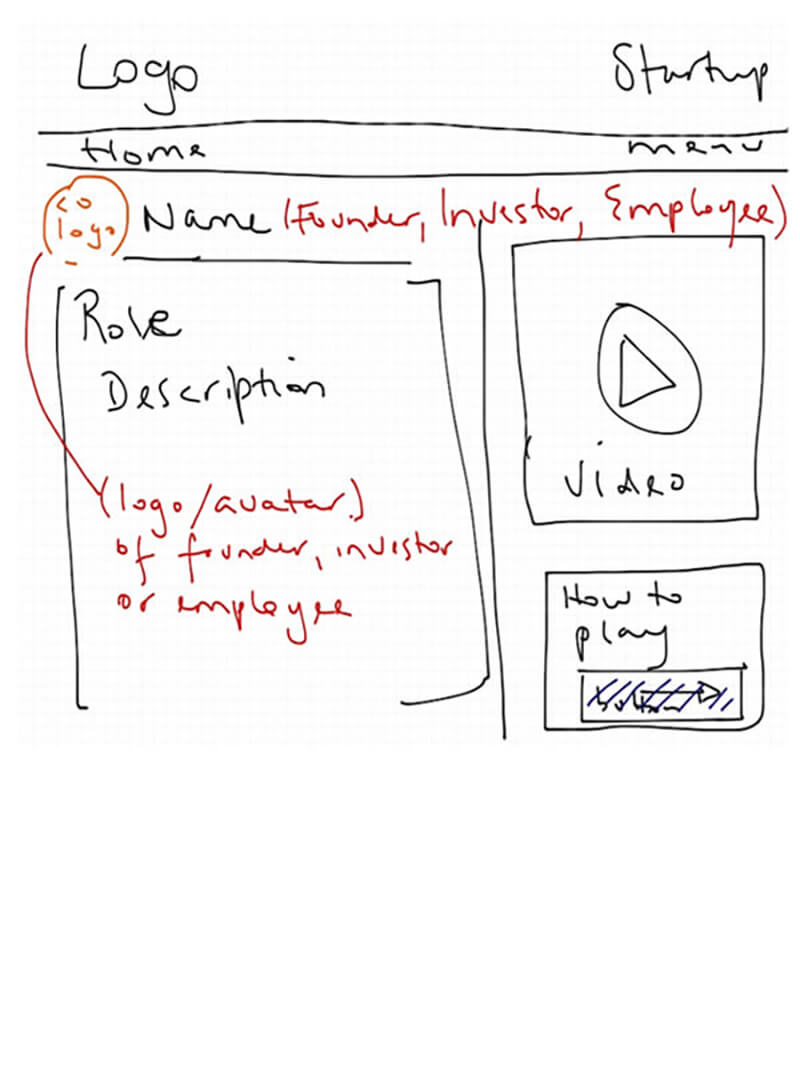 Logo
Startup
Home
menu
co
logo
Name (Founder, Investor, Employee)
Role
Description
(logo/avatar)
of founder, investor
or employee
Video
How to
play